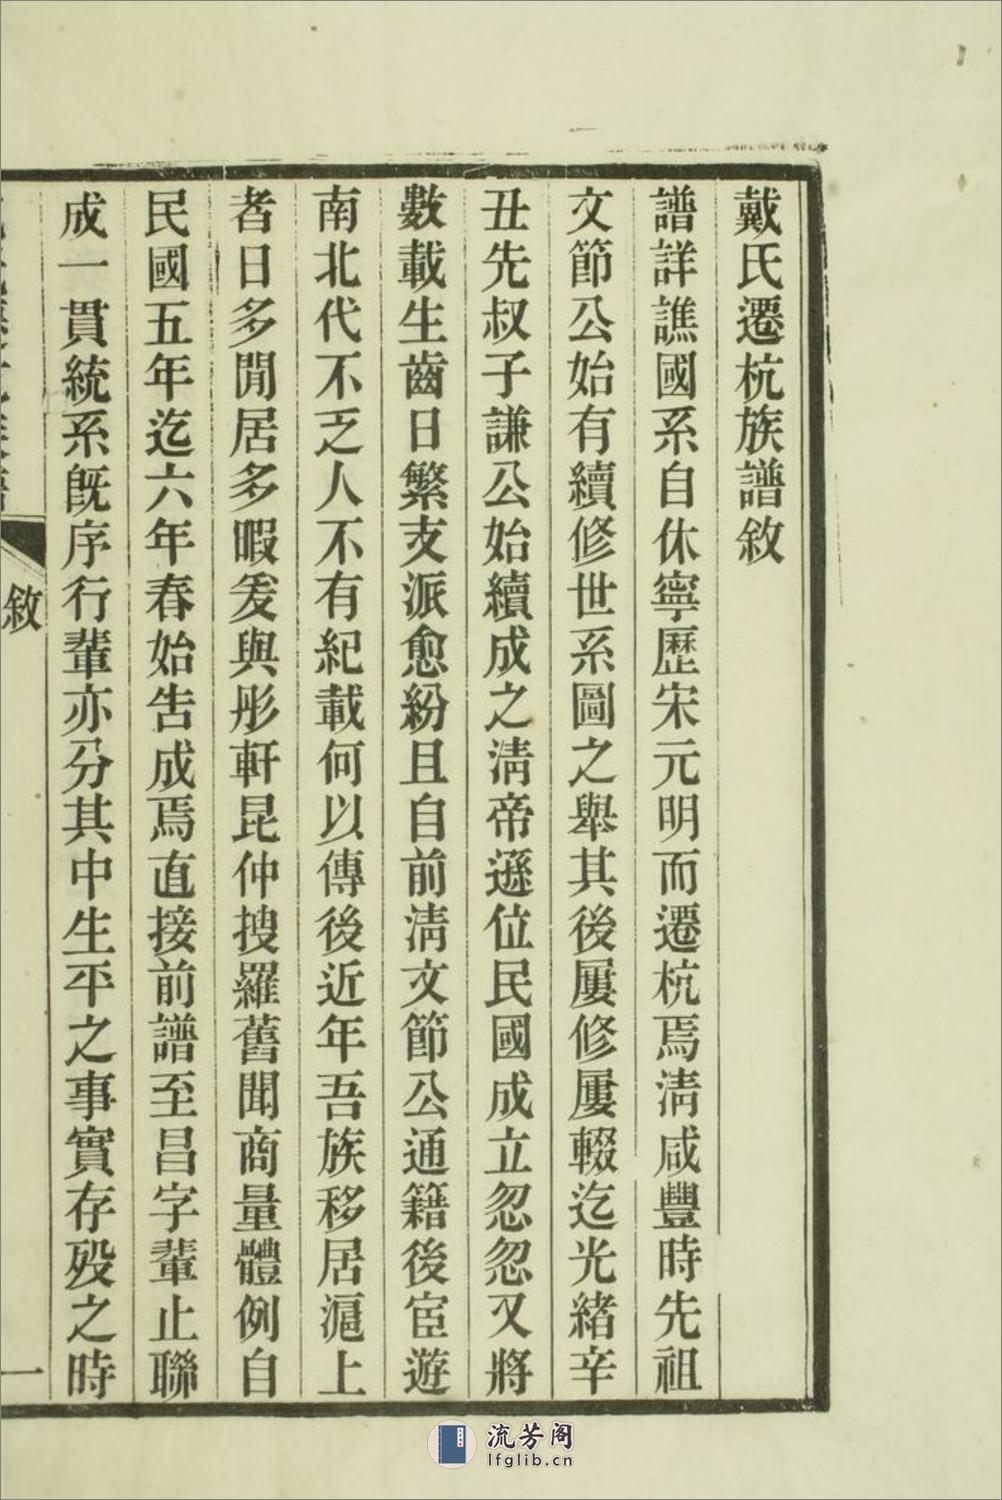 戴氏遷杭族譜敘
譜詳譙國系自休寧歷宋元明而遷杭焉淸咸豐時先祖
文節公始有續修世系圖之舉其後屢修屢輟迄光緒辛
丑先叔子謙公始續成之淸帝遜位民國成立忽忽又將
數載生齒日繁支派愈紛且自前淸文節公通籍後宦遊
南北代不乏人不有紀載何以傳後近年吾族移居滬上
者日多閒居多暇爰與彤軒昆仲搜羅舊聞商量體例自
民國五年迄六年春始吿成焉直接前譜至昌字輩止聯
成一貫統系旣序行輩亦分其中生平之事實存歿之時
敘
一
流芳阁
lfglib.cn